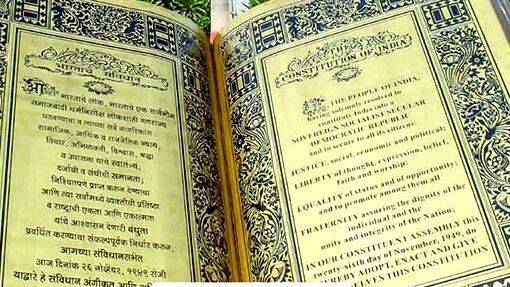 भारताचे संविधान
आम्ही भारताचे लोक, भारताचे एक सार्वभौम
समाजवादी धर्मनिरपेक्ष लोकशाही गणराज्य
घडवण्याचा व त्याच्या सर्व नागरिकांना
सामाजिक, आर्थिक व राजनैतिक न्याय;
विचार, अभिव्यक्ती, विश्वास, श्रद्धा
व उपासना यांचे स्वातंत्र्य;
दर्जाची व संधीची समानता;
निश्चितपणे प्राप्त करून देण्याचा
आणि त्या सर्वांमध्ये व्यक्तीची प्रतिष्ठा
व राष्ट्राची एकता आणि एकात्मता
यांचे आश्वासन देणारी बंधुता
प्रवर्धित करण्याचा संकल्पपूर्वक निर्धार करून;
आमच्या संविधानसभेत
आज दिनांक २६ नोव्हेंबर, १९४९ रोजी
याद्वारे हे संविधान अंगीकृत आणि
THE
CONSTITUTION OF INDIA
WE, THE PEOPLE OF INDIA,
having solemnly resolved to
constitute India into a
SOVEREIGN SOCIALIST SECULAR
DEMOCRATIC REPUBLIC
and to secure to all its citizens:
JUSTICE, social, economic and political;
LIBERTY of thought, expression, belief,
faith and worship;
EQUALITY of status and of opportunity;
and to promote among them all
FRATERNITY assuring the dignity of the
individual and the
unity and integrity of the Nation;
IN OUR CONSTITUENT ASSEMBLY this
twenty-sixth day of November, 1949, do
HEREBY ADOPT, ENACT AND GIVE
OURSELVES THIS CONSTITUTION